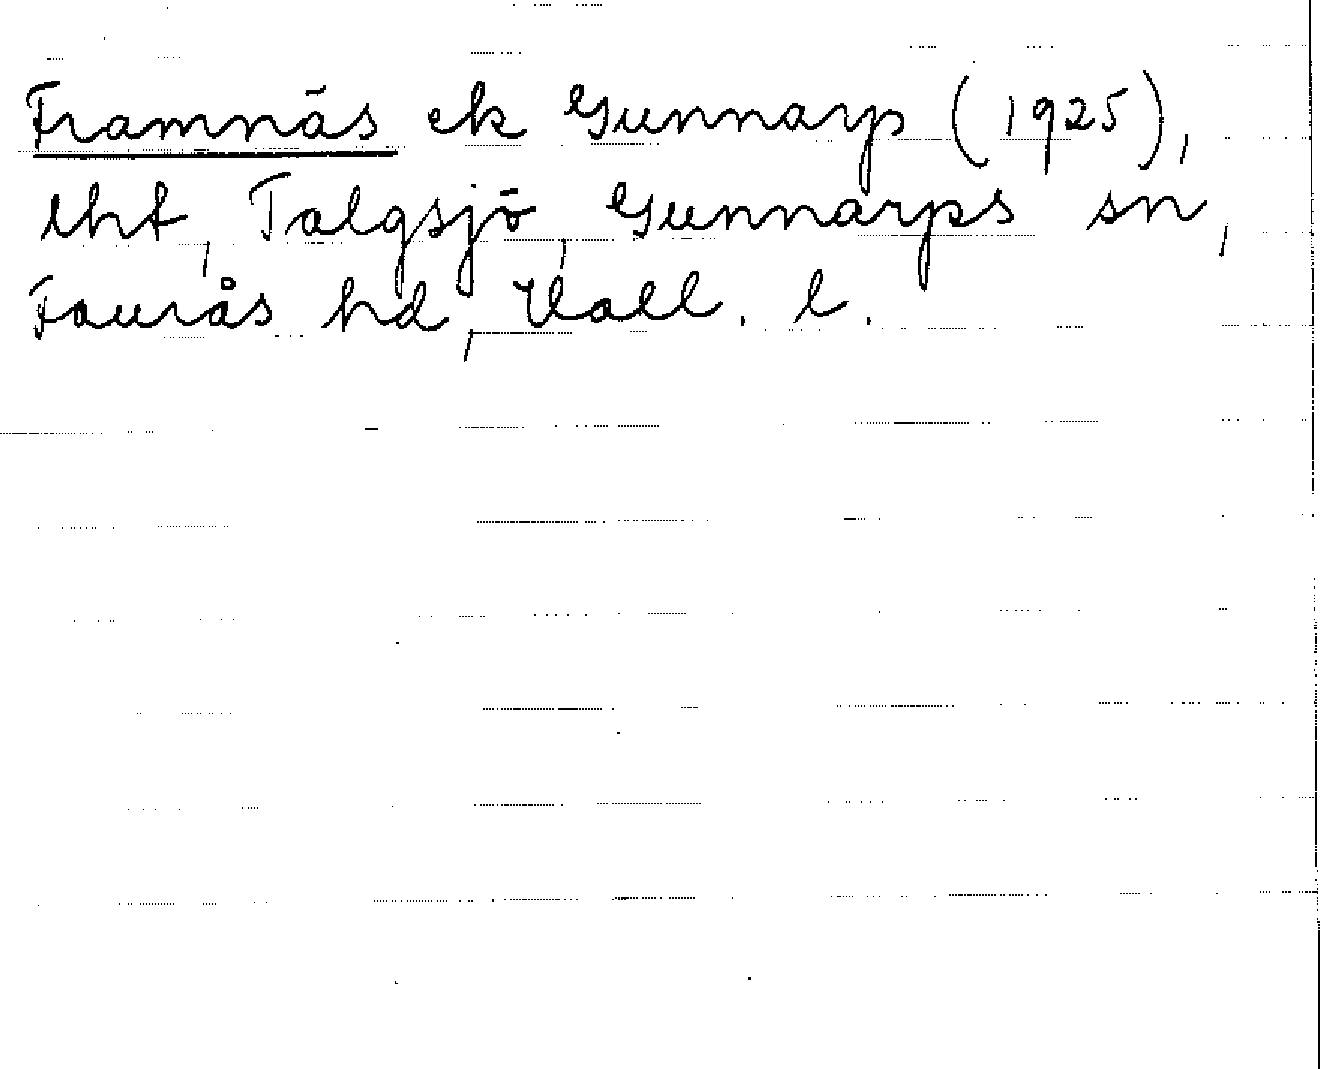 Framnäs ek Gunnarp (1925),
lht, Talgsjö, Gunnarps sn,
Faurås hd, Hall. l.